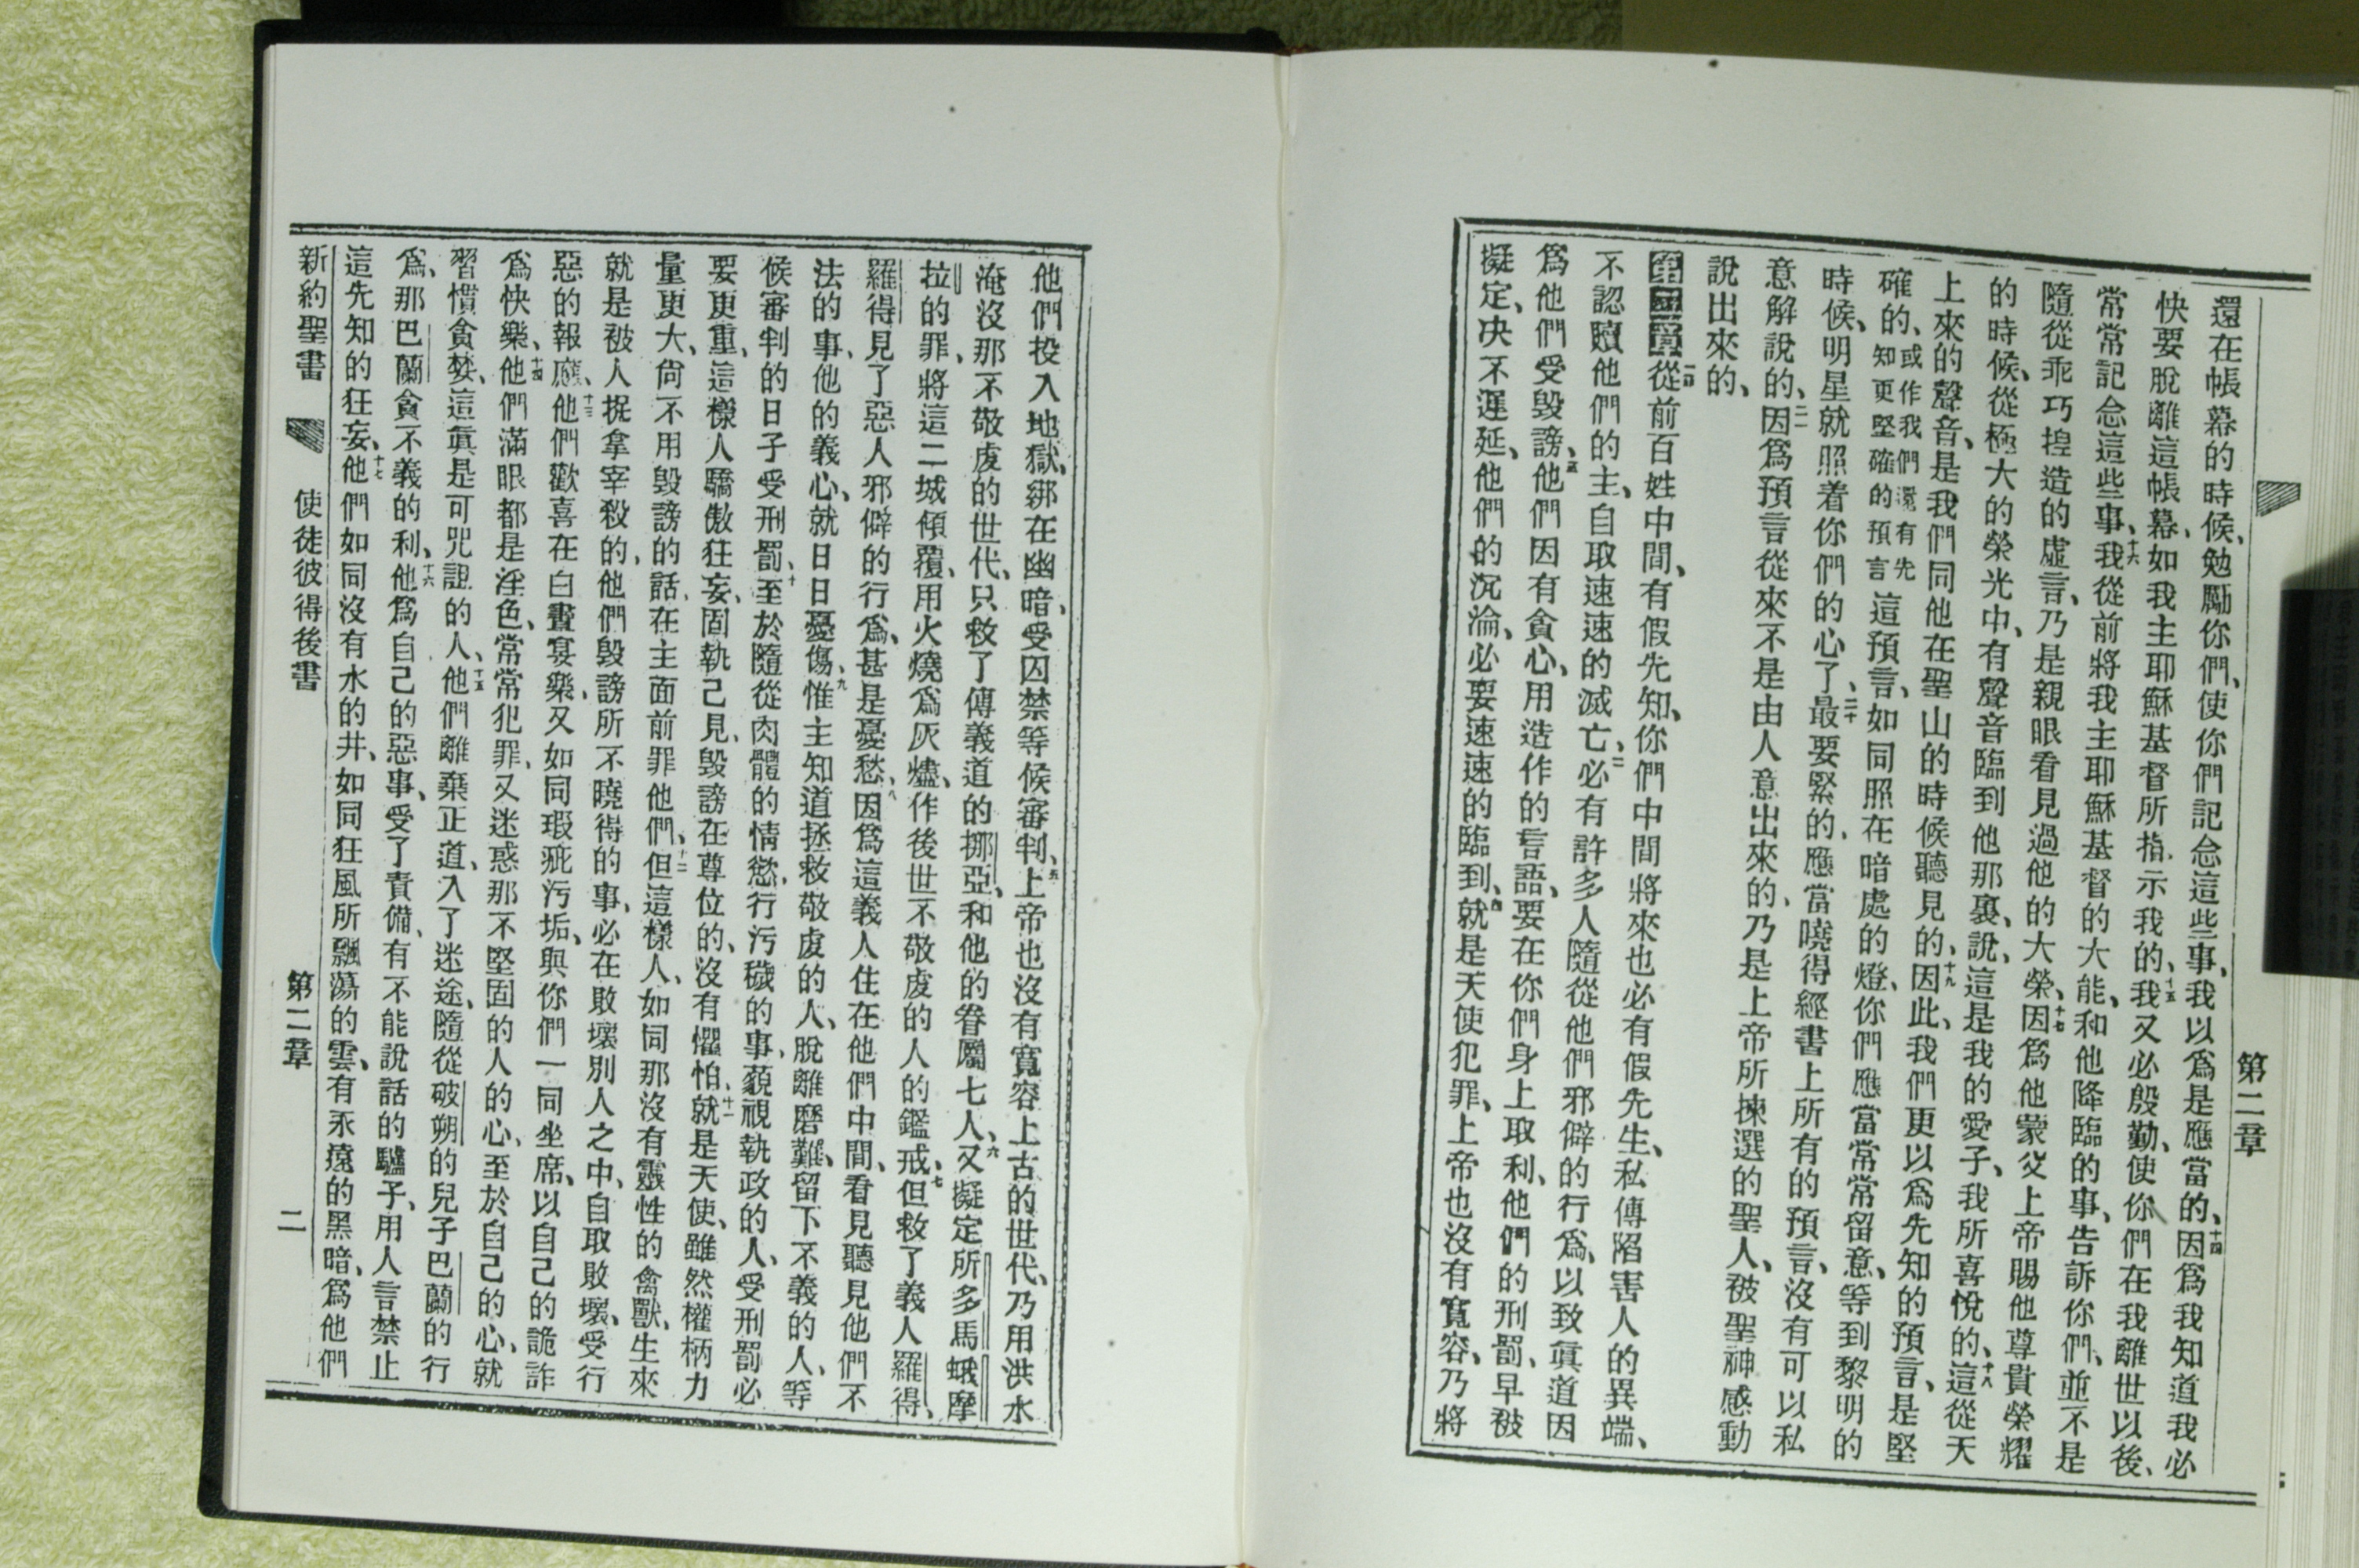 第二章
還在帳幕的時候、勉勵你們、使你們記念這些事、我以爲是應當的、十四因爲我知道我必
快要脫離這帳幕、如我主耶穌基督所指示我的、十五我又必殷勤、使你們在我離世以後、
常常記念這些事、十六我從前將我主耶穌基督的大能、和他降臨的事、告訴你們、並不是
隨從乖巧揑造的虛言、乃是親眼看見過他的大榮、十七因爲他蒙父上帝賜他尊貴榮耀
的時候、從極大的榮光中、有聲音臨到他那裏、說、這是我的愛子、我所喜悅的、十八這從天
上來的聲音、是我們同他在聖山的時候聽見的、十九因此、我們更以爲先知的預言、是堅
確的、或作我們還有先知更堅確的預言這預言、如同照在暗處的燈、你們應當常常留意、等到黎明的
時候、明星就照着你們的心了、二十最要緊的、應當曉得經書上所有的預言、沒有可以私
意解說的、二一因爲預言從來不是由人意出來的、乃是上帝所揀選的聖人、被聖神感動
說出來的、
第二章一從前百姓中間、有假先知、你們中間將來也必有假先生、私傳陷害人的異端、
不認贖他們的主、自取速速的滅亡、二必有許多人隨從他們邪僻的行爲、以致眞道因
爲他們受毀謗、三他們因有貪心、用造作的言語、要在你們身上取利、他們的刑罰、早被
擬定、决不遲延、他們的沉淪、必要速速的臨到、四就是天使犯罪、上帝也沒有寬容、乃將
他們投入地獄、綁在幽暗、受囚禁等候審判、五上帝也沒有寬容上古的世代、乃用洪水
淹沒那不敬虔的世代、只救了傳義道的挪亞、和他的眷屬七人、六又擬定所多馬蛾摩
拉的罪、將這二城傾覆、用火燒爲灰燼、作後世不敬虔的人的鑑戒、七但救了義人羅得、
羅得見了惡人邪僻的行爲、甚是憂愁、八因爲這義人住在他們中間、看見聽見他們不
法的事、他的義心、就日日憂傷、九惟主知道拯救敬虔的人、脫離磨難、留下不義的人、等
候審判的日子受刑罰、十至於隨從肉體的情慾、行污穢的事、藐視執政的人、受刑罰必
要更重、這樣人驕傲狂妄、固執己見、毀謗在尊位的、沒有懼怕、十一就是天使、雖然權柄力
量更大、尙不用毀謗的話、在主面前罪他們、十二但這樣人、如同那沒有靈性的禽獸、生來
就是被人捉拿宰殺的、他們毀謗所不曉得的事、必在敗壞別人之中、自取敗壞、受行
惡的報應、十三他們歡喜在白晝宴樂、又如同瑕疵污垢、與你們一同坐席、以自己的詭詐
爲快樂、十四他們滿眼都是淫色、常常犯罪、又迷惑那不堅固的人的心、至於自己的心、就
習慣貪婪、這眞是可咒詛的人、十五他們離棄正道、入了迷途、隨從破朔的兒子巴蘭的行
爲、那巴蘭貪不義的利、十六他爲自己的惡事、受了責備、有不能說話的驢子、用人言禁止
這先知的狂妄、十七他們如同沒有水的井、如同狂風所飄蕩的雲、有永遠的黑暗、爲他們
新約聖書 使徒彼得後書 第二章 二